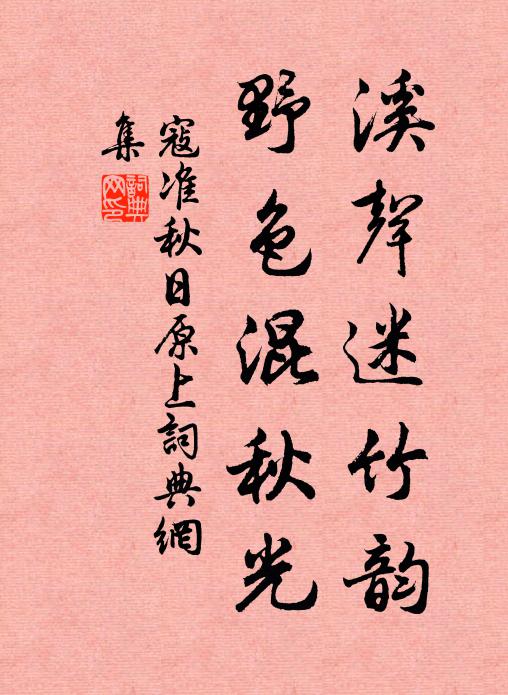 溪聲迷竹韵
野色混秋光
寇准秋日原上詞典網
集
詞典网印